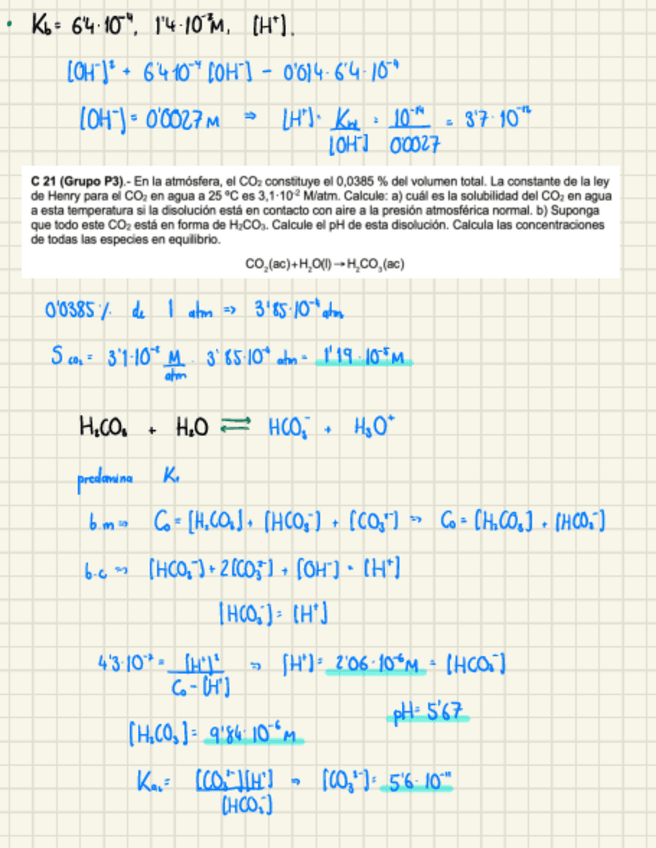 • Kb = 6'4·10⁻⁴, 1'4·10⁻²M, [H⁺].
[OH⁻]² + 6'4·10⁻⁴ [OH⁻] - 0'014·6'4·10⁻⁴
[OH⁻] = 0'0027 M ⇒ [H⁺] = Kw / [OH⁻] = 10⁻¹⁴ / 0'0027 = 3'7·10⁻¹²
C 21 (Grupo P3).- En la atmósfera, el CO₂ constituye el 0,0385 % del volumen total. La constante de la ley
de Henry para el CO₂ en agua a 25 ºC es 3,1·10⁻² M/atm. Calcule: a) cuál es la solubilidad del CO₂ en agua
a esta temperatura si la disolución está en contacto con aire a la presión atmosférica normal. b) Suponga
que todo este CO₂ está en forma de H₂CO₃. Calcule el pH de esta disolución. Calcula las concentraciones
de todas las especies en equilibrio.
CO₂(ac)+H₂O(l)→H₂CO₃(ac)
0'0385% de 1 atm ⇒ 3'85·10⁻⁴ atm
S CO₂ = 3'1·10⁻² M/atm · 3'85·10⁻⁴ atm = 1'19·10⁻⁵ M
H₂CO₃ + H₂O ⇌ HCO₃⁻ + H₃O⁺
predomina K₁
b.m ⇒ C₀ = [H₂CO₃] + [HCO₃⁻] + [CO₃²⁻] ⇒ C₀ = [H₂CO₃] + [HCO₃⁻]
b.c ⇒ [HCO₃⁻] + 2[CO₃²⁻] + [OH⁻] = [H⁺]
[HCO₃⁻] = [H⁺]
4'3·10⁻⁷ = [H⁺]² / C₀ - [H⁺] ⇒ [H⁺] = 2'06·10⁻⁶ M = [HCO₃⁻]
pH = 5'67
[H₂CO₃] = 9'84·10⁻⁶ M
Ka₂ = [CO₃²⁻][H⁺] / [HCO₃⁻] ⇒ [CO₃²⁻] = 5'6·10⁻¹¹